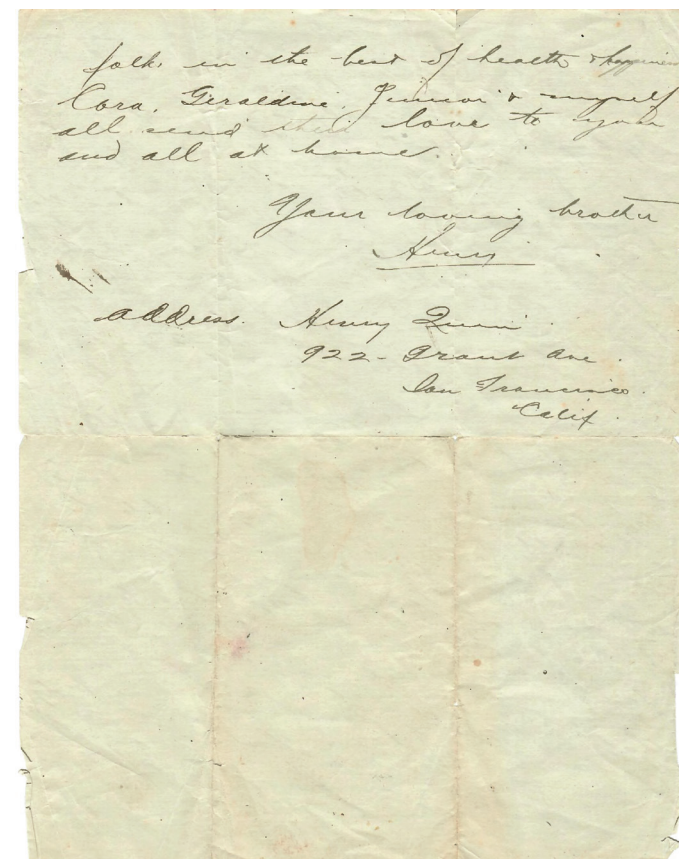 folks in the best of health & happiness
Cora, Geraldine, Junior & myself
all send their love to you
and all at home.
Your loving brother
Henry
address. Henry Quinn
922 - Grant Ave.
San Francisco.
Calif.